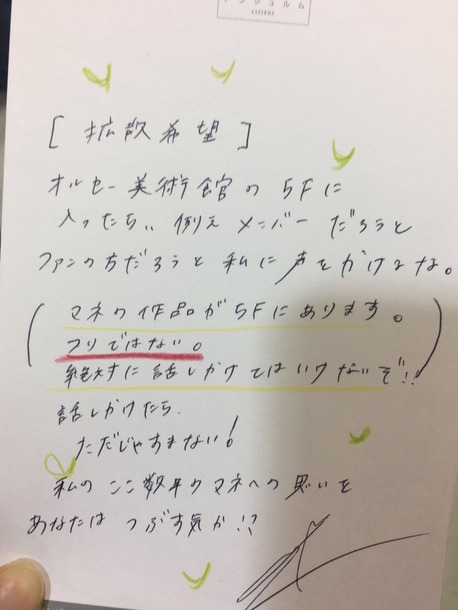 アンジュルム
[拡散希望]
オルセー美術館の5Fに
入ったら、例え メンバー だろうと
ファンの方だろうと 私に 声をかけるな。
(マネの作品が5Fにあります。
フリではない。
絶対に話しかけてはいけないぞ!!)
話しかけたら、
ただじゃすまない!
私のここ数年のマネへの思いを
あなたは つぶす気か!?